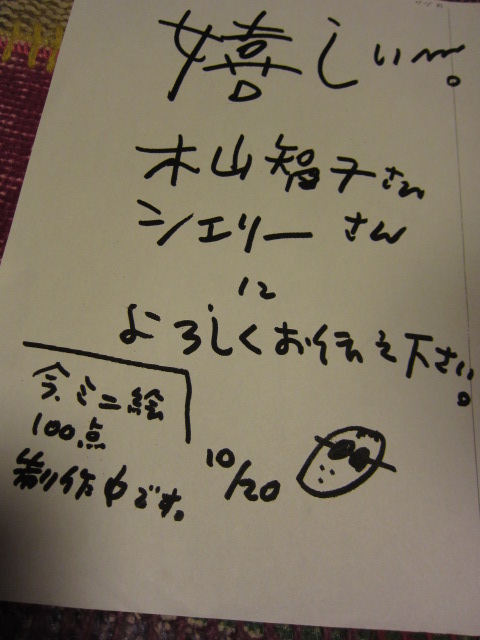 嬉しい〜。
木山智子さん
シェリーさん
に
よろしくお伝え下さい。
今、ミニ絵
100点
制作中です。
10/20